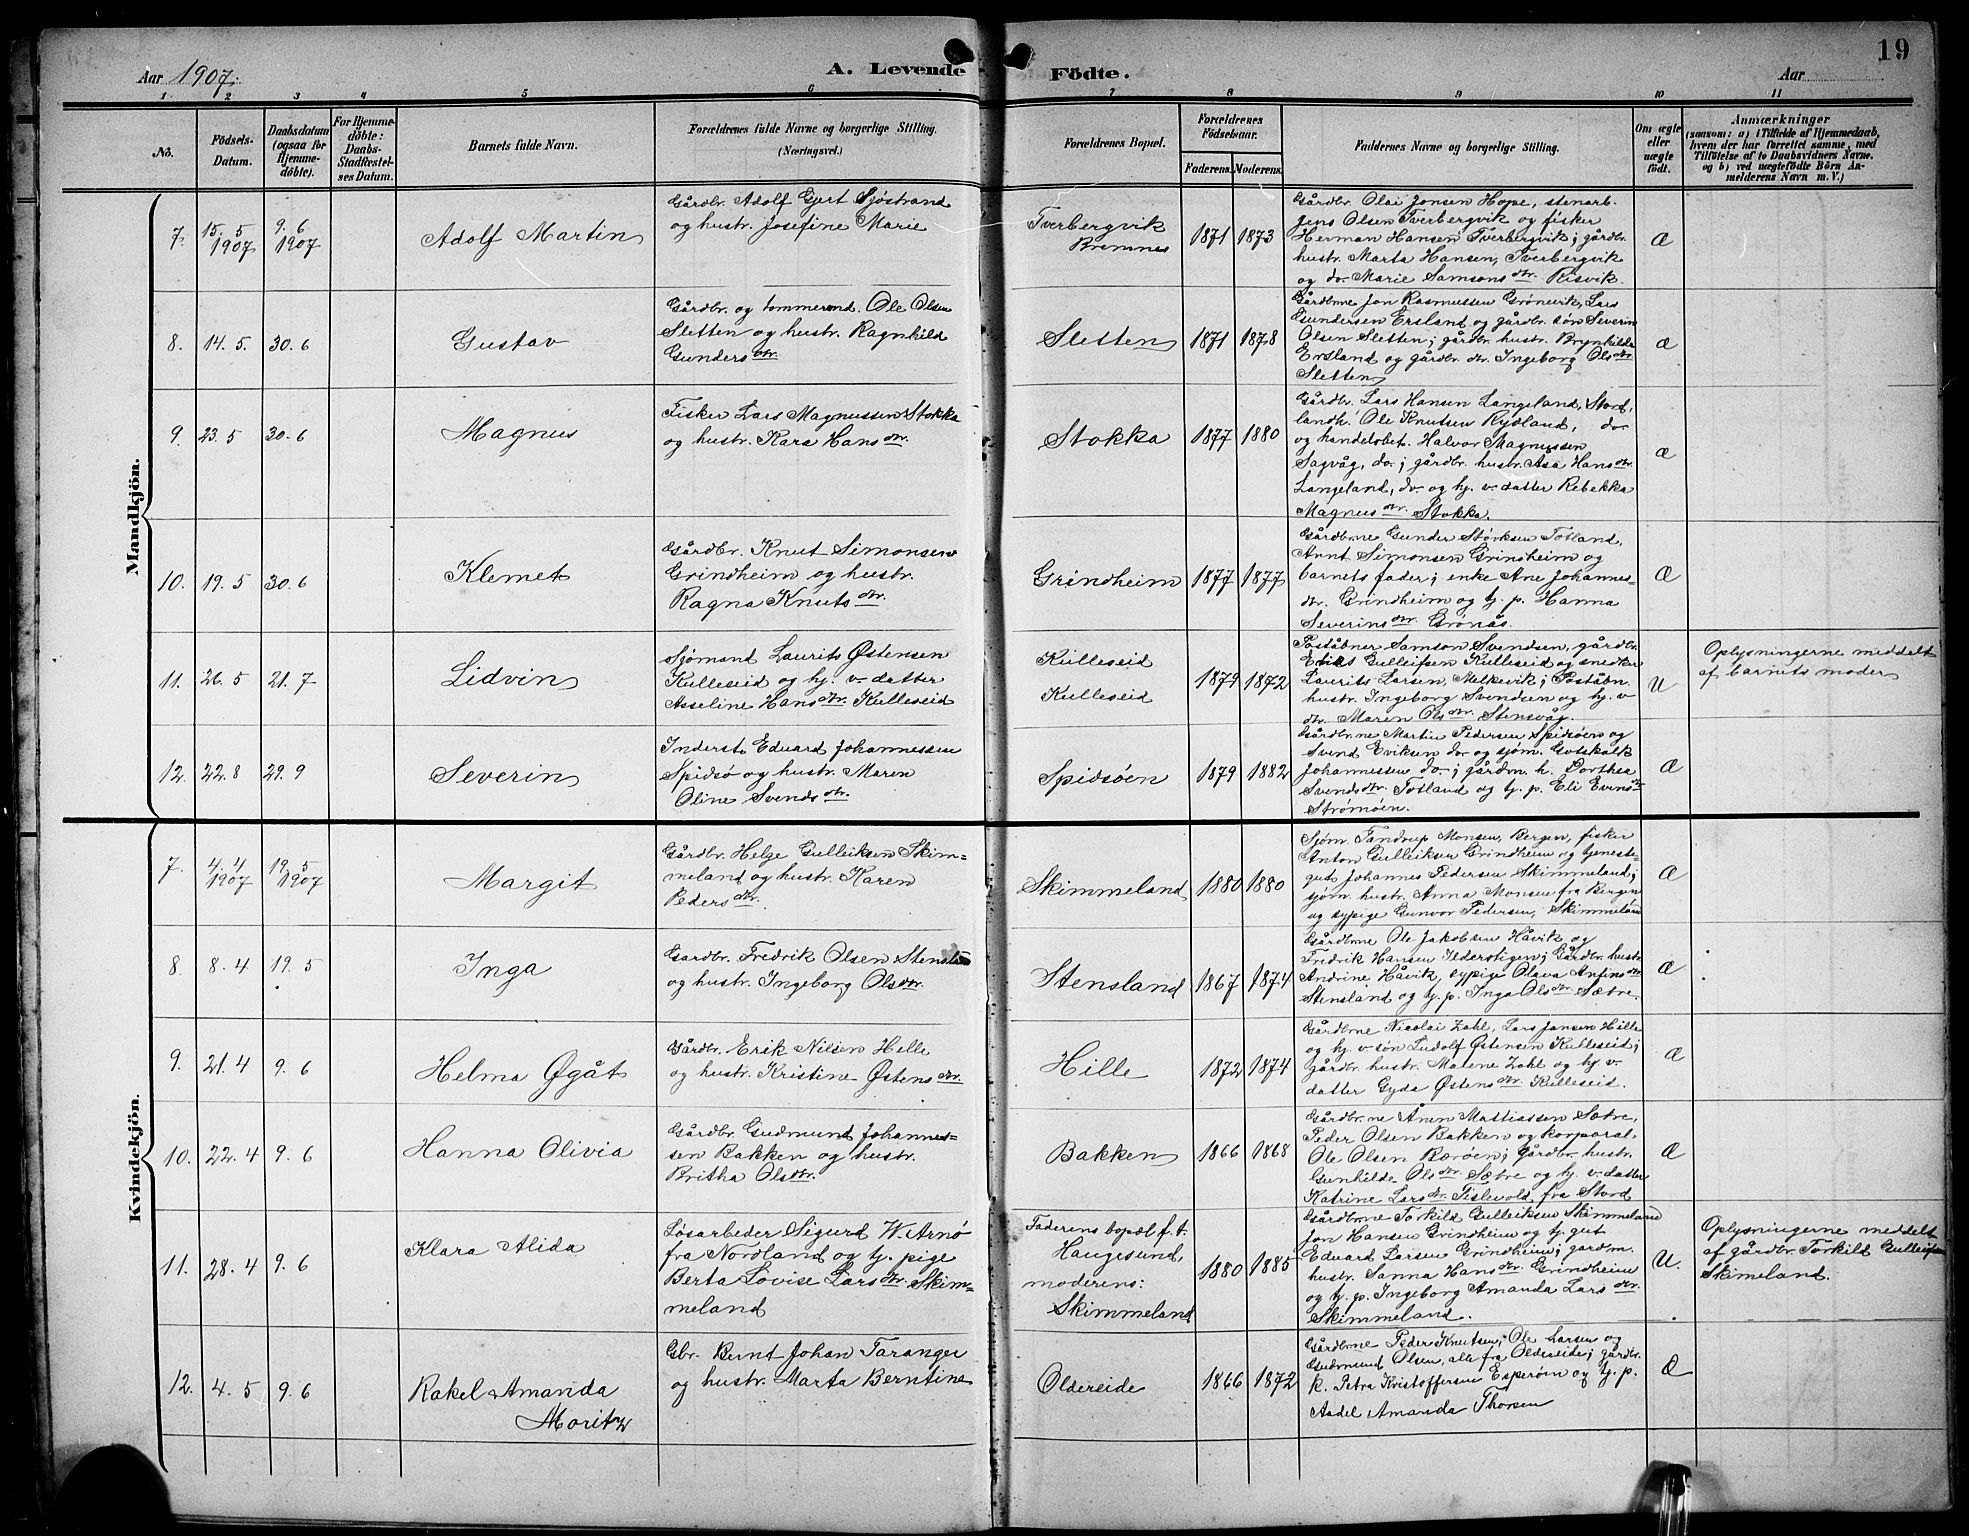 19
Aar 1907.
A. Levende Födte.
Aar
1 2 3 4 5 6 7 8 9 10 11
No.
Födsels-
Datum.
Daabsdatum
(ogsaa for
Hjemme-
döbte).
For Hjemme-
döbte:
Daabs-
Stadfæstel-
ses Datum.
Barnets fulde Navn.
Forældrenes fulde Navne og borgerlige Stilling.
(Næringsvei.)
Forældrenes Bopæl.
Forældrenes
Födselsaar.
Faderens. Moderens.
Faddernes Navne og borgerlige Stilling.
Om ægte
eller
uægte
födt.
Anmærkninger
(saasom: a) i Tilfælde af Hjemmedaab,
hvem der har forrettet samme, med
Tilföielse af to Daabsvidners Navne,
og b) ved uægtefödte Börn An-
melderens Navn m. V.)
Mandkjön.
7.
15. 5
1907
9. 6
1907
Adolf Martin
Gårdbr. Adolf Gjert Sjøstrand
og hustr. Josefine Marie
Tverbergvik
Bremnes
1871 1873
Gårdbr. Olai Jonsen Hope, stenarb.
Jens Olsen Tverbergvik og fisker
Herman Hansen Tverbergvik; gårdbr.
hustr. Marta Hansen, Tverbergvik
og do. Marie Samsonsdtr. Risvik.
Æ
8. 14. 5. 30. 6
Gustav
Gårdbr. og tømmermd. Ole Olsen
Sletten og hustr. Ragnhild
Gundersdtr.
Sletten
1871 1878
Gårdbrne Jon Rasmussen Grønevik, Lars
Gundersen Ersland og gårdbr. søn Severin
Olsen Sletten; gårdbr. hustr. Brynhilda
Ersland og gårdbr. dtr. Ingeborg Olsdtr.
Sletten
Æ
9. 23. 5 30. 6
Magnus
Fisker Lars Magnussen Stokka
og hustr. Kara Hansdtr.
Stokka
1877 1880
Gårdbr. Lars Hansen Langeland, Stord,
landh. Ole Knutsen Rydland, do.
og handelsbet. Halvor Magnussen
Sagvåg, do.; gårdbr. hustr. Asa Hansdtr.
Langeland, do. og hj. v. datter Rebekka
Magnusdtr. Stokka.
Æ
10. 19. 5 30. 6
Klemet
Gårdbr. Knut Simonsen
Grindheim og hustr.
Ragna Knutsdtr.
Grindheim
1877 1877
Gårdbrne Gunder Størksen Totland,
Arnt Simonsen Grindheim og
barnets fader; enke Ane Johannes-
dtr. Grindheim og tj. p. Hanna
Severinsdtr. Grønås.
Æ
11. 26. 5 21. 7
Lidvin
Sjømand Laurits Østensen
Kulleseid og hj. v. datter
Asseline Hansdtr. Kulleseid
Kulleseid
Kulleseid
1879 1872
Poståbner Samson Svendsen, gårdbr.
Eriks Gulleifsen Kulleseid og snedker
Laurits Larsen, Melkevik; Poståbn.
hustr. Ingeborg Svendsen og hj. v.
dtr. Maren Olsdtr. Stensvåg.
U
Oplysningerne meddelt
af barnets moder
12. 22. 8 29. 9
Severin
Inderst Eduard Johannessen
Spidsø og hustr. Maren
Oline Svendsdtr.
Spidsøen
1879 1882
Gårdbr.ne Martin Pedersen Spidsøen og
Svend Eriksen do. og sjøm. Gotskalk
Johannessen do.; gårdm. h. Dorthea
Svendsdtr. Totland og tj. p. Eli Evensdtr.
Strømøen.
Æ
Kvindekjön.
7.
4. 4
1907
19. 5
1907
Margit
Gårdbr. Helge Gulleiksen Skim-
meland og hustr. Karen
Pedersdtr.
Skimmeland
1880 1880
Sjøm. Tandrup Monsen, Bergen, fisker
Anton Gulleiksen Grindheim og tjeneste-
gut Johannes Pedersen Skimmeland;
sjøm. hustr. Anna Monsen fra Bergen
og sypige Gunvor Pedersen, Skimmeland
Æ
8. 8. 4 19. 5
Inga
Gårdbr. Fredrik Olsen
og hustr. Ingeborg Olsdtr.
Stensland
1867 1874
Gårdbrne Ole Jakobsen Håvik og
Fredrik Hansen; Gårdbr. hustr.
Andrine Håvik, sypige Olava Antinsdtr.
Stensland og tj. p. Inga Olsdtr. Sætre.
Æ
9. 21. 4 9. 6
Helma Ågåt
Gårdbr. Erik Nilsen Hille
og hustr. Kristine Østensdtr.
Hille
1872 1874
Gårdbrne Nicolai Zahl, Lars Jansen Hille
og hj. v. søn Ludolf Østensen Kulleseid;
gårdbr. hustr. Malene Zahl og hj. v.
datter Gyda Østensdtr. Kulleseid.
Æ
10. 22. 4 9. 6
Hanna Olivia
Gårdbr. Gudmund Johannes-
sen Bakken og hustr.
Britha Olsdtr.
Bakken
1866 1868
Gårdbr.ne Ånen Mattiassen Sætre,
Peder Olsen Bakken og korporal
Ole Olsen Bærøen; gårdbr. hustr.
Gunhilde Olsdtr. Sætre og hj. v. datter
Katrine Larsdtr. Tislevold, fra Stord
Æ
11. 28. 4 9. 6
Klara Alida
Løsarbeder Sigurd W. Arnø
fra Nordland og tj. pige
Berta Lovise Larsdtr. Skim-
meland
Faderens bopæl f. t.
Haugesund,
moderens:
Skimmeland
1880 1885
Gårdbrne Torkild Gulleiksen Skimmeland
Jon Hansen Grindheim og tj. gut
Eduard Larsen Grindheim; gardm.
hustr. Sanna Hansdtr. Grindheim
og tj. p. Ingeborg Amanda Larsdtr.
Skimmeland.
U.
Oplysningerne meddelt
af gårdbr. Torkild Gulleiksen
Skimeland.
12. 4. 5 9. 6
Rakel Amanda
Moritz
Gbr. Bernt Johan Taranger
og hustr. Marta Berntine
Oldereide
1866 1872
Gårdbrne Peder Knutsen, Ole Larsen og
Gudmund Olsen, alle fra Oldereide; gårdbr.
k. Petra Kristoffersen Esperøen og tj. p.
Aadel Amanda Thorsen
Æ